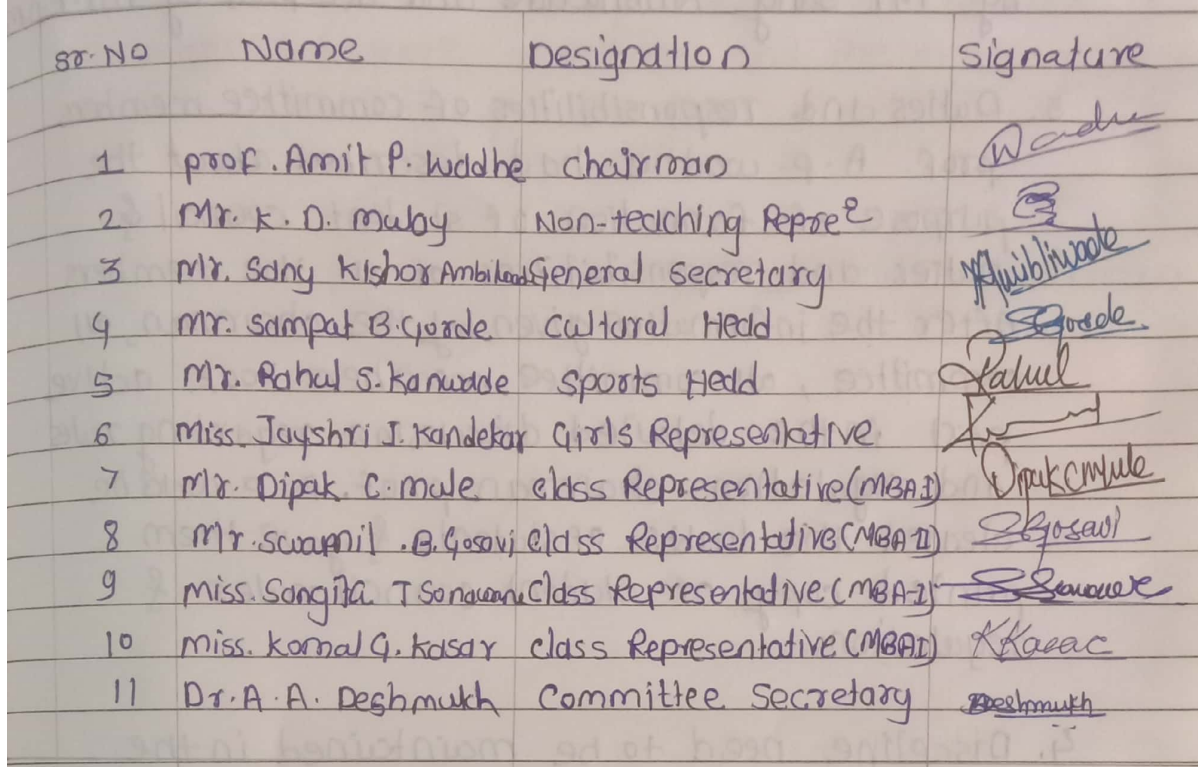 Sr. No Name Designation Signature
1 prof. Amit P. Wadhe Chairman Wadhe
2 Mr. K. D. Muley Non-teaching Repre
3 Mr. Sany Kishor General Secretary
4 Mr. Sampat B. Gorde Cultural Head SGorde
5 Mr. Rahul S. Kanwade Sports Head Rahul
6 Miss. Jayshri J. Kandekar Girls Representative
7 Mr. Dipak. C. Mule class Representative (MBA I) Dipakcmule
8 Mr. Swapnil .B. Gosavi class Representative (MBA-II) SGosavi
9 Miss. Sangita T Sonawane Class Representative (MBA-I)
10 Miss. Komal G. Kasar class Representative (MBAI) KKasar
11 Dr. A. A. Deshmukh Committee Secretary Deshmukh